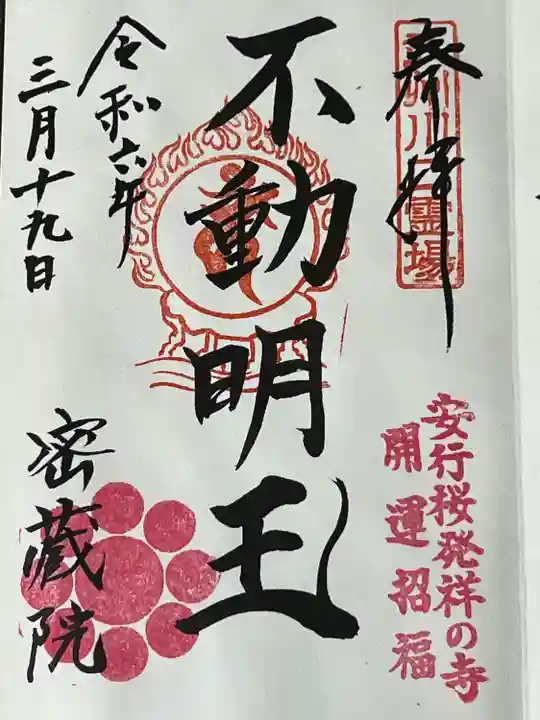 奉拝
川口霊場
安行桜発祥の寺
開運招福
不動明王
令和六年
三月十九日
密蔵院